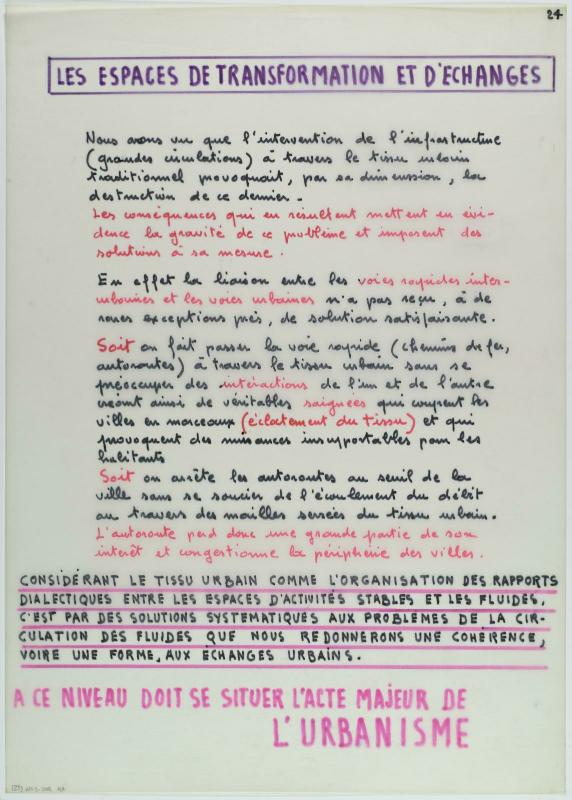 24
LES ESPACES DE TRANSFORMATION ET D'ECHANGES
Nous avons vu que l'intervention de l'infrastructure
(grandes circulations) à travers le tissu urbain
traditionnel provoquait, par sa dimension, la
destruction de ce dernier.
Les conséquences qui en résultent mettent en évi-
dence la gravité de ce problème et imposent des
solutions à sa mesure.
En effet la liaison entre les voies rapides inter-
urbaines et les voies urbaines n'a pas reçu, à de
rares exceptions près, de solution satisfaisante.
Soit on fait passer la voie rapide (chemins de fer,
autoroutes) à travers le tissu urbain sans se
préoccuper des intéractions de l'un et de l'autre
créant ainsi de véritables saignées qui coupent les
villes en morceaux (éclatement du tissu) et qui
provoquent des nuisances insupportables pour les
habitants
Soit on arrête les autoroutes au seuil de la
ville sans se soucier de l'écoulement du débit
au travers des mailles serrées du tissu urbain.
L'autoroute perd donc une grande partie de son
intérêt et congestionne la périphérie des villes.
CONSIDÉRANT LE TISSU URBAIN COMME L'ORGANISATION DES RAPPORTS
DIALECTIQUES ENTRE LES ESPACES D'ACTIVITÉS STABLES ET LES FLUIDES,
C'EST PAR DES SOLUTIONS SYSTEMATIQUES AUX PROBLEMES DE LA CIR-
CULATION DES FLUIDES QUE NOUS REDONNERONS UNE COHÉRENCE,
VOIRE UNE FORME, AUX ÉCHANGES URBAINS.
A CE NIVEAU DOIT SE SITUER L'ACTE MAJEUR DE
L'URBANISME